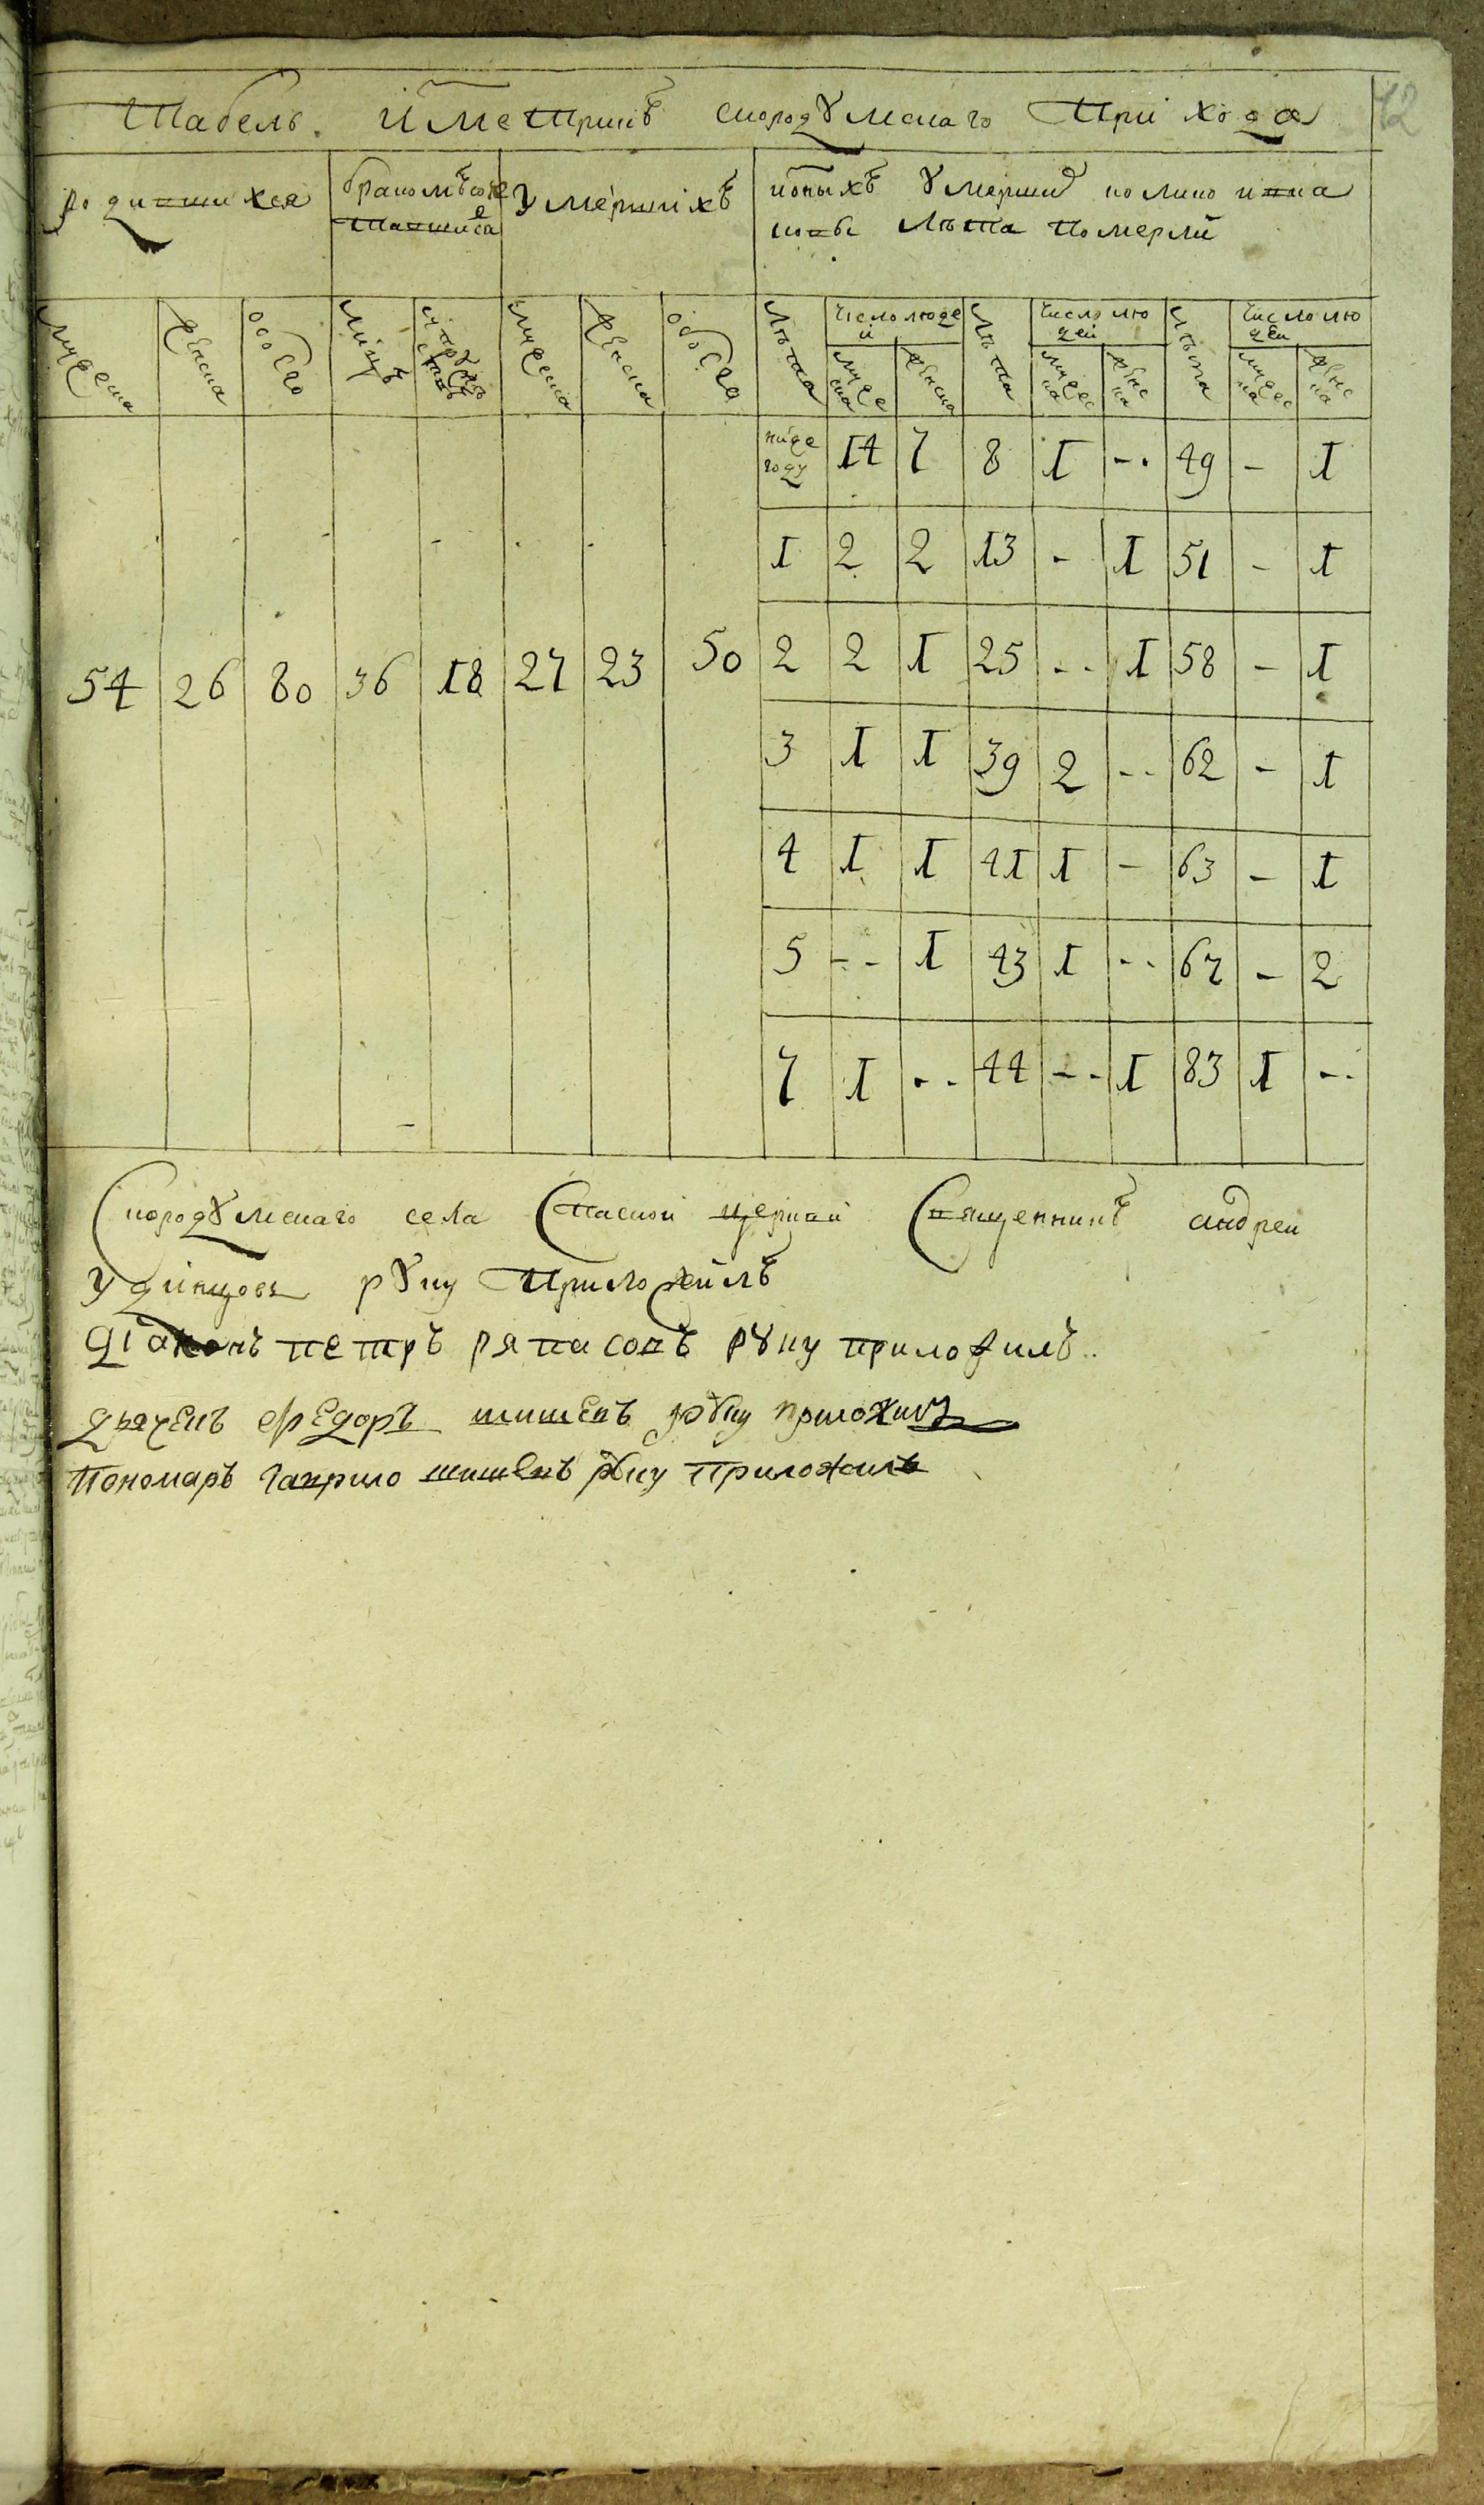 Табель. и҆з̾ метрикъ скородꙋмскаго приходa
42
родившихся
бракомъ соче
тавшихся
умершихъ
ис оныхъ ꙋмерших по скипо
лѣта померли
мужеска женска обоего лицъ мужеска женска обоего лѣта число люде
й мужеска женска лѣта число лю
дей мужес
ка женс
ка лѣта число лю
дей мужес
ка женс
ка
ниже
году 14 7 8 1 -- 49 - 1
1 2 2 13 - 1 51 - 1
54 26 80 36 18 27 23 50 2 2 1 25 -- 1 58 - 1
3 1 1 39 2 -- 62 - 1
4 1 1 41 1 - 63 - 1
5 -- 1 43 1 -- 67 - 2
7 1 -- 44 -- 1 83 1 --
Скородꙋмскаго села Спаской церкви Священникъ андреи
удинцовъ рꙋку приложилъ
діаконъ петръ ряпасовъ рꙋку приложилъ.
дьячекъ федоръ шишевъ рꙋку приложилъ
Пономарь гаврило шишевъ рꙋку приложилъ